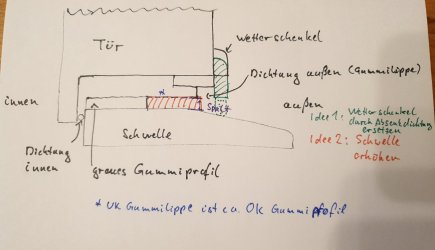 Wetterschenkel
Tür
Dichtung außen (Gummilippe)
*
Spalt
innen
außen
Idee 1: Wetterschenkel
durch Absenkdichtung
ersetzen
Idee 2: Schwelle
erhöhen
Schwelle
Dichtung
innen
graues Gummiprofil
* UK Gummilippe ist ca. OK Gummiprofil